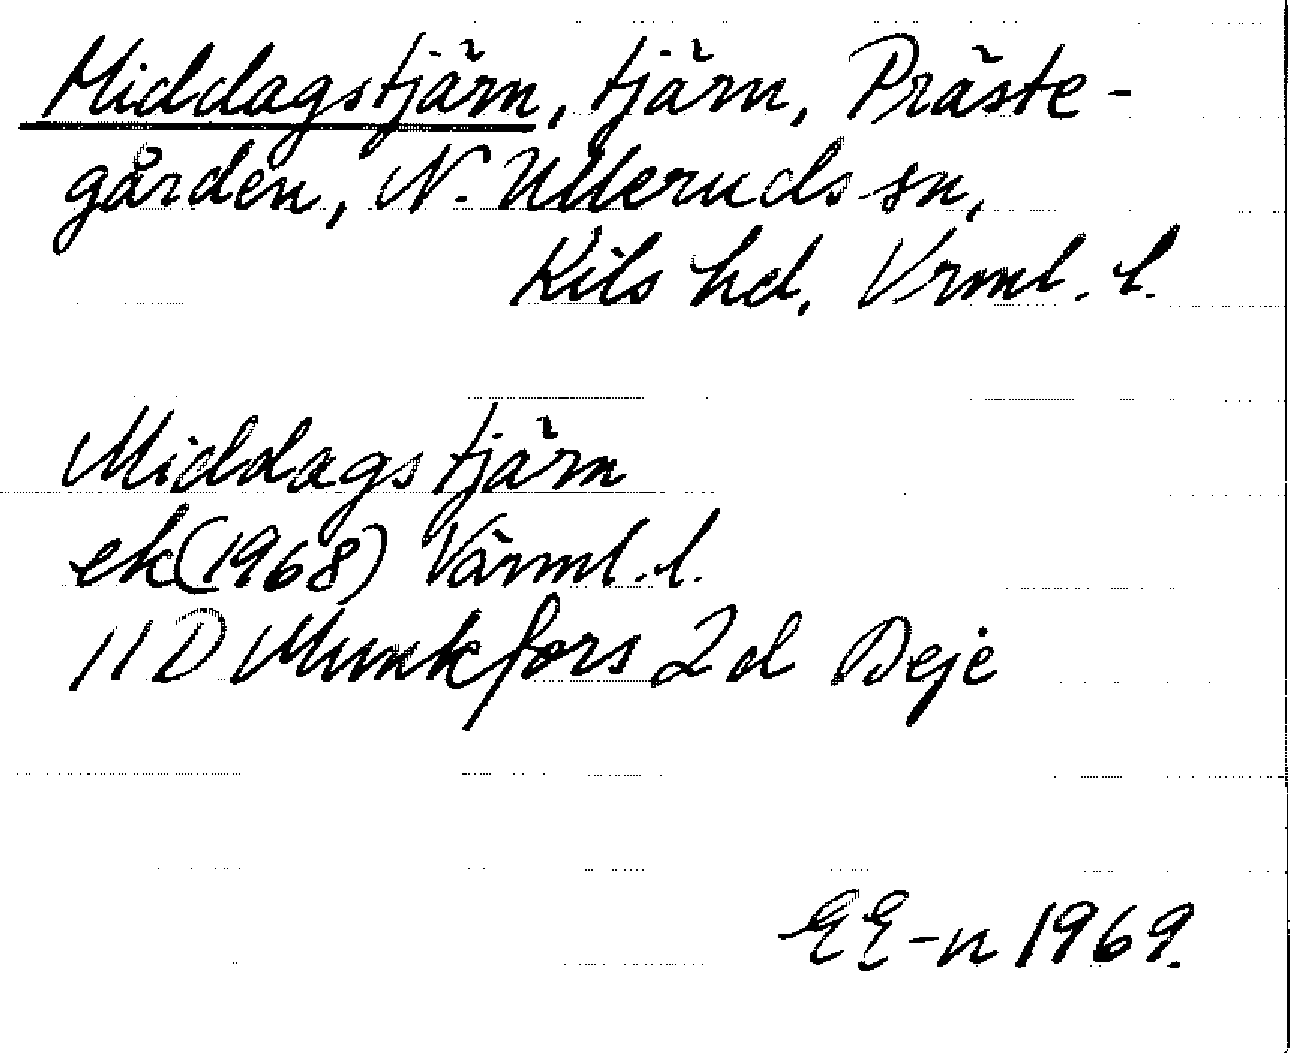 Middagstjärn, tjärn, Präste-
gården, N. Ulleruds sn,
Kils hd, Vrml. l.
Middagstjärn
ek (1968) Värml. l.
11 D Munkfors 2d Deje
EE-n 1969.